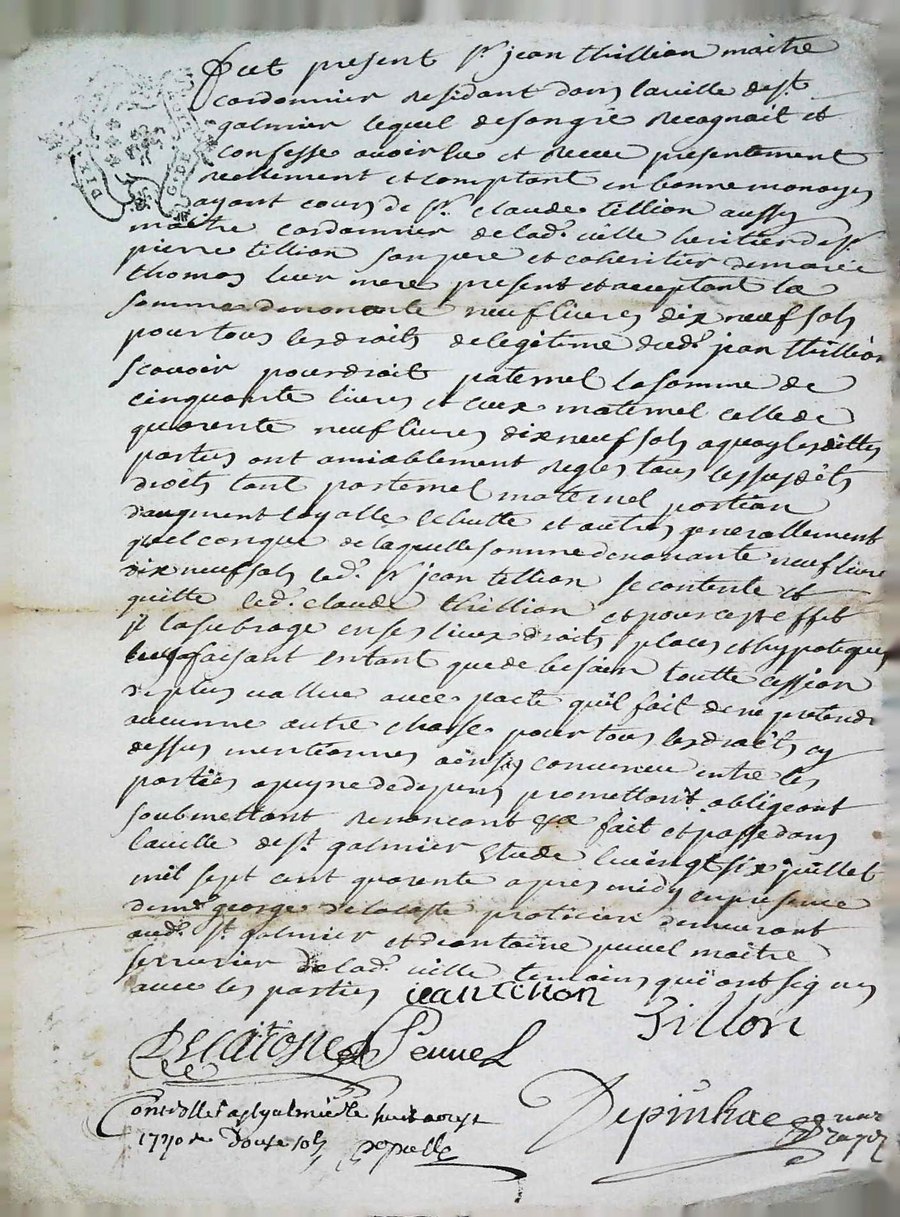 fut present Sr jean thillion maitre
cordonnier residant dans laville de st
galmier lequel desongré recognait et
confesse avoir eu et receu presentement
reellement et comptant en bonne monoye
ayant cours de Sr claude tillion aussy
maitre cordonnier de lade ville heritier de Sr
pierre tillion son pere et coheritier demarie
thomas leur mere present et acceptant la
somme de nonante neuf livres dix neuf sols
pour tous les droits delegitime dudt jean thillion
scavoir pour droit paternel la somme de
cinquante livres et ceux maternel celle de
quarente neuf livres dix neuf sols a quoy lesdittes
parties ont amiablement regles tous lessusdits
droits tant paternel maternel portion
daugment loyalle echutte et autres generallement
quelconque de laquelle somme de nonante neuf livre
dix neuf sols ledt Sr jean tillion se contente et
quitte ledt claude thillion et pour cest effet
il la subroge en ses lieux droits places et hypoteques
faisant entant que de besoin toutte cession
de plus vallue avec pacte quil fait de ne pretendre
aucunne autre chose pour tous les droits cy
dessus mentionnes ainsy convenu entre les
parties a peyne de depens promettant obligeant
soubmettant renoncant &a fait et passe dans
laville de st galmier etude le vingt six juillet
mil sept cent quarente apres midy en presence
de me george delacoste praticien demeurant
audt st galmier et dantoine peuvel maitre
serrurier de lade ville temoins qui ont signes
avec les parties jean tillion
Tillon
Delacoste Peuvel
Controllé a st galmier le huit aoust
1740 Rx douze sols
Depinhac